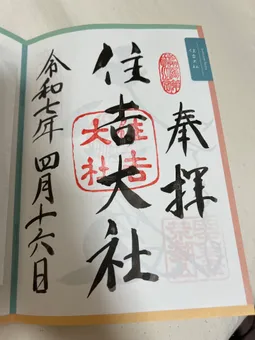 奉拝
住吉大社
住吉
大社
令和七年四月十六日